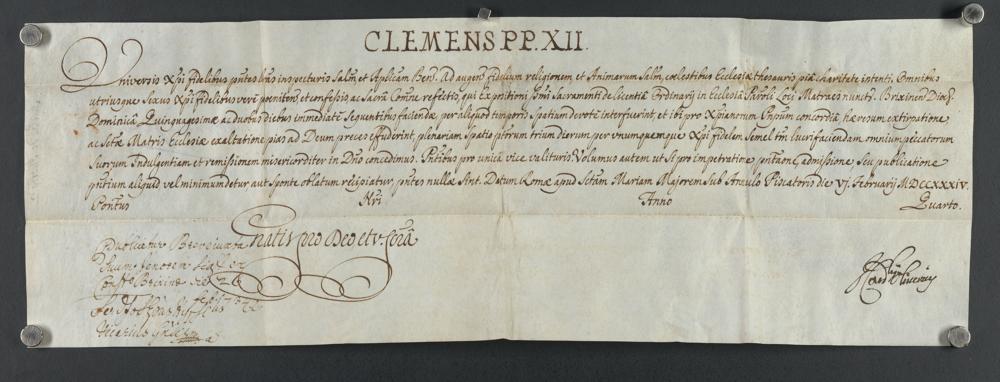 CLEMENS P.P. XII.
Universis Xpi fidelibus pntes Lras inspecturis Salm, et Aplicam Ben. Ad augen fidelium religionem et Animarum Salm, cœlestibus Ecclesiæ thesauris pia charitate intenti, Omnibus
utriusque Sexus Xpi fidelibus verè pœniten et confessis, ac Sacra Comne refectis, qui Expositioni Ssmi Sacramenti de licentia Ordinarij in Ecclesia Paroli Loci Matraes nuncup. Brixinen Dioc.
Dominica Quinquagesimæ ac duobus diebus immediatè Sequentibus facienda per aliquod temporis Spatium devotè interfuerint, et ibi pro Xpianorum Pnpum concordia hæresum extirpatione,
ac Sctæ Matris Ecclesiæ exaltatione pias ad Deum preces effuderint, plenariam Spatio pttrum trium dierum per unumquemque Xpi fidelem Semel tm lucrifaciendam omnium peccatorum
Suorum Indulgentiam et remissionem misericorditer in Dno concedimus. Pntibus pro unica vice valituris. Volumus autem ut Si pro impetratione, pntaone, admissione, Seu publicatione
pntium aliquid vel minimum detur aut Sponte oblatum recipiatur, pntes nullæ Sint. Datum Romæ apud Sctam Mariam Majorem Sub Annulo Piscatoris die VJ. Februarij MDCCXXXIV.
Pontus Nri Anno Quarto.
Gratis pro Deo et Scra
Publicatur Breve juxta
Suum tenorem
Consto Brixinæ die 26